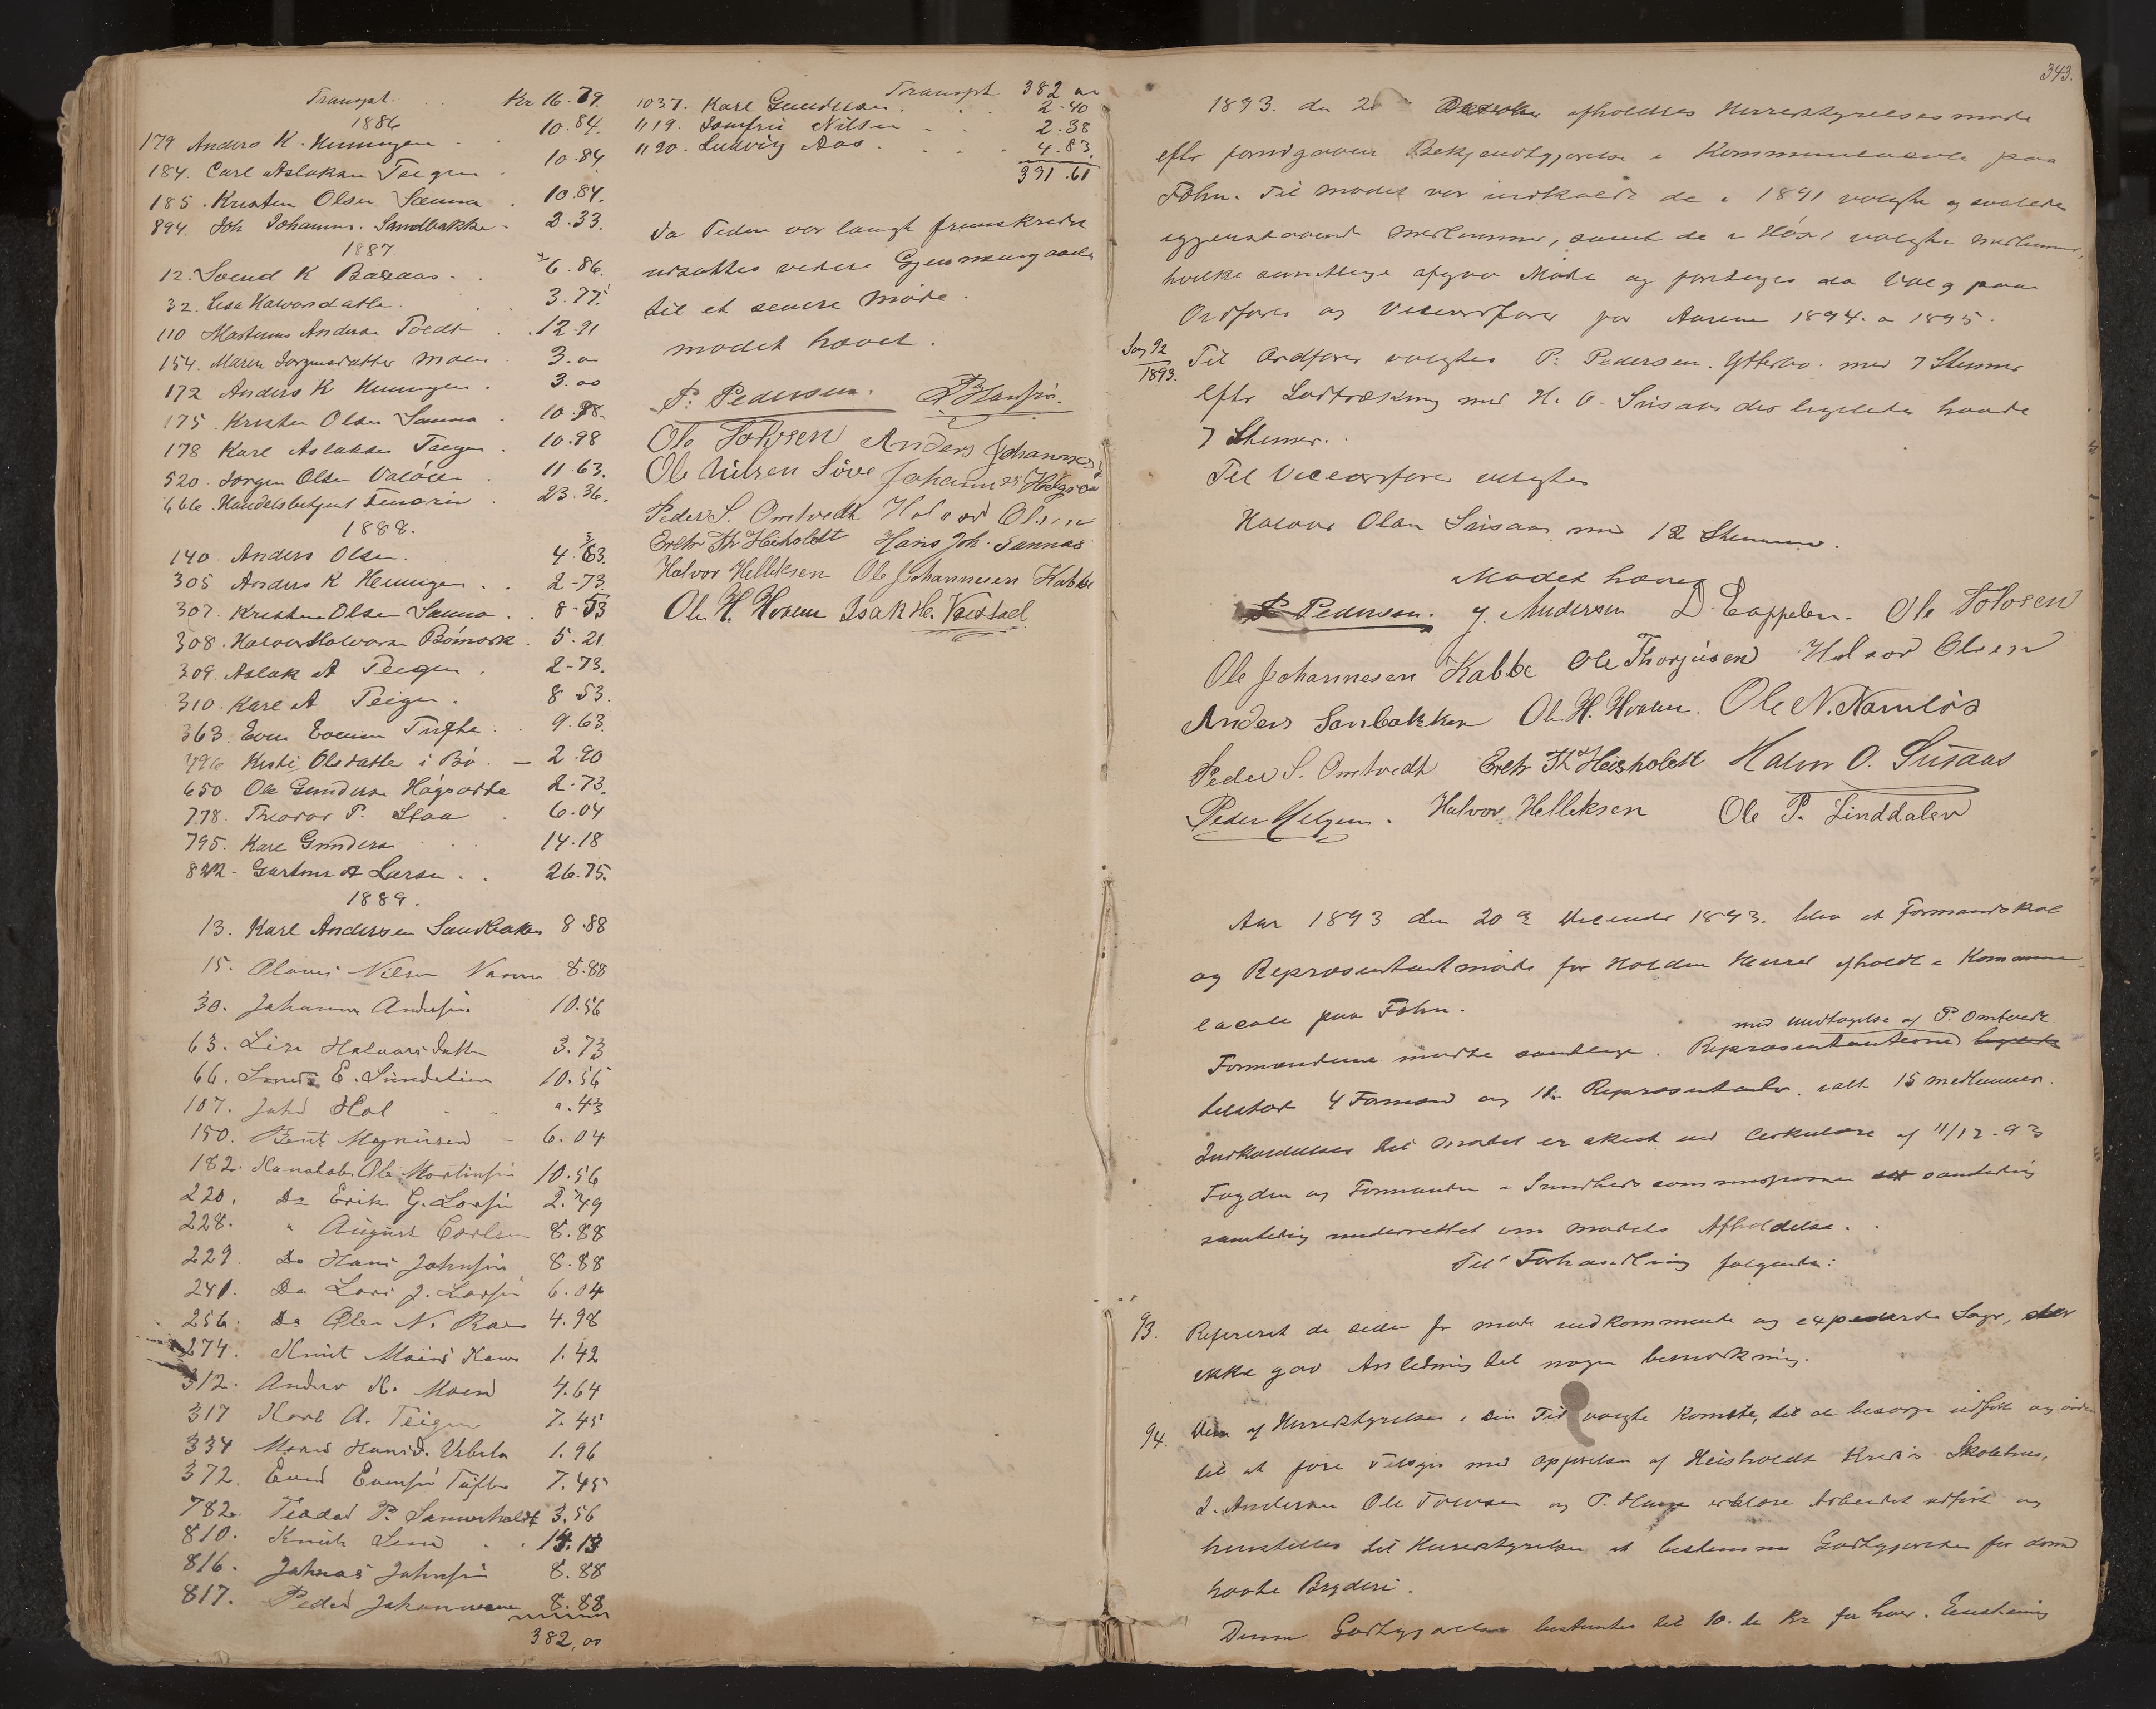 Transpt. . . Kr 16.79.
1886
179 Anders K. Henningen . . 10.84.
184. Carl Aslaksen Teigen . 10.84.
185. Kristen Olsen Sanna . 10.84.
894. Joh Johanns. Sandbakke . 2.33.
1887.
12. Svend K Baraas . . 6.86.
32. Lisa Halvorsdatter . 3.77.
110 Martinus Anderse Tvedt . 12.91
154. Maren Jorgensdatter Moen 3.00
172 Anders K Henningen . 3.00
175. Kristen Olsen Sanna . 10.98
178 Karl Aslaksen Teigen . 10.98
520. Jorgen Olsen Valöen . 11.63.
666. Handelsbetjent 23.36.
1888.
140. Anders Olsen. 4.63.
305 Anders K Henningen . . 2-73
307. Kristen Olsen Sanna . 8.53
308. Halvor Halvorsen Bömark . 5.21
309. Aslak A Teigen . 2-73.
310. Karl A Teigen . 8.53.
363. Even Evensen Tufte . . 9.63.
496 Kisti Olsdatter i Bö . — 2.90
650 Ole Gunderse 2.73.
778. Theodor P. Staa . 6.04
795. Karl Gunderse . . 14.18
822. Gartner A Larsen . . 26.75.
1889.
13. Karl Andersen Sandbakke 8.88
15. Nilsen 8.88
30. Johannes Andersen 10.56
63. Lise Halvorsdatter 3.73
66. E. Sundetien 10.56
107. John Hol - - ".43
150. Bent Magnusen - 6.04
182. Ole Martinsen 10.56
220. Do Erik G. Larsen 2.49
228. " August Carlsen 8.88
229. Do Hans Johnsen 8.88
241. Do Lars J. Larsen 6.04
256. Do Ole N. 4.98
274. Knut 1.42
312. Anders K. Moen 4.64
317 Karl A. Teigen 7.45
334 1.96
372. Even Evensen Tufte 7.45
782. P. 3.56
810. Knut . . 14.13
816. Johnas Johnsen 8.88
817. Peder Johannesen 8.88
382,00
Transpt 382 00
1037. Karl Gundersen . . 2.40
1119. Jomfru Nilsen . . 2.38
1120. Ludvig Aas . . . . 4.83.
391.61
Da Tiden var langt fremskreden
udsattes videre Gjennemgaaelse
til et senere Møde.
Mødet hævet.
P. Pedersen. P Hansen.
Ole Tolvsen Anders Johannes
Ole Nilsen Söve Johannes
Peder S. Omtvedt Halvor Olsen
Erik Th Heisholdt Hans Joh. Sannes
Halvor Helleksen Ole Johannesen Kabbe
Ole H. Hvalen Isak He. Vrestael
343.
1893. den 20 afholdtes Herredstyrelsesmøde
efter forudgaaende Bekjendtgjørelse i Kommunelocale paa
Fehn. Til Mødet var indkaldt de i 1891 valgte og
gjenstaaende Medlemmer, samt de i Høst valgte Medlemmer,
hvilke samtlige afgav Møde og foretoges da Valg paa
Ordfører og Viceordfører for Aarene 1894. a 1895.
Sag 92
1893.
Til Ordfører valgtes P. Pedersen. Ytterbø. med 7 Stemmer
efter Lodtrækning med H. O. Sisaas der ligeledes havde
7 Stemmer.
Til Viceordfører valgtes
Halvor Olsen Sisaas med 12 Stemmer.
Mødet hævet
P Pedersen. J. Andersen D. Cappelen. Ole Tolvsen
Ole Johannesen Kabbe Ole Thorjusen Halvor Olsen
Anders Sanbakken Ole H. Hvalen. Ole N. Namløs
Peder S. Omtvedt Erik Th Heisholdt Halvor O. Sisaas
Peder Helgen. Halvor Helleksen Ole P. Linddalen
Aar 1893 den 20 de December 1893. blev et Formandskab
og Repræsentantmøde for Holden Herred afholdt i Kommune
locale paa Fehn.
med Undtagelse af P. Omtvedt
Formændene mødte samtlige. Repræsentanterne
tilstede 4 Formænd og 11 Repræsentanter. ialt 15 Medlemmer.
Indkaldelsen til Mødet er skeet ved Cirkulære af 11/12.93
Fogden og Formanden i Sundhedscommissionen samtidig
samtidig underrettet om Mødets Afholdelse. .
Til Forhandling følgende:
93. Refereret de siden f. Møde indkommende og expederede Sager, der
ikke gav Anledning til nogen bemærkning.
94. Den af Herredstyrelsen i sin Tid valgte Komite, til at besørge udført og
til at føre Tilsyn med Opførelse af Heisholdt Kreds Skolehus,
J. Andersen Ole Tolvsen og P. Hansen erklære Arbeidet udført og
henstilles til Herredstyrelsen at bestemme Godtgjørelse for dem
havte Bryderi.
Denne Godtgjørelse bestemtes til 10. ti Kr for hver. Enstemig